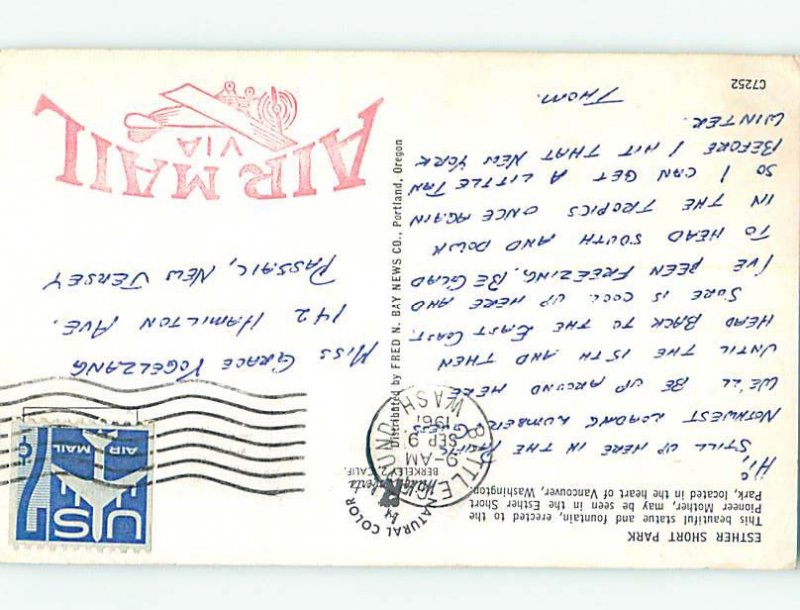 ESTHER SHORT PARK
This beautiful statue and fountain, erected to the
Pioneer Mother, may be seen in the Esther Short
Park, located in the heart of Vancouver, Washington.
HI:
STILL UP HERE IN THE PACIFIC
NOTHWEST LOADING LUMBER. GUESS
WE'LL BE UP AROUND HERE
UNTIL THE 15TH AND THEN
HEAD BACK TO THE EAST COAST.
SURE IS COOL UP HERE AND
I'VE BEEN FREEZING, BE GLAD
TO HEAD SOUTH AND DOWN
IN THE TROPICS ONCE AGAIN
SO I CAN GET A LITTLE TAN
BEFORE I HIT THAT NEW YORK
WINTER.
THOM.
C7252
Distributed by FRED N. BAY NEWS CO., Portland, Oregon
NATURAL COLOR
BERKELEY 2, CALIF.
BATTLE GROUND
WASH.
9 - AM
SEP 9
1961
US
AIR MAIL
MISS GRACE VOGELZANG
142 HAMILTON AVE.
PASSAIC, NEW JERSEY
VIA
AIR MAIL